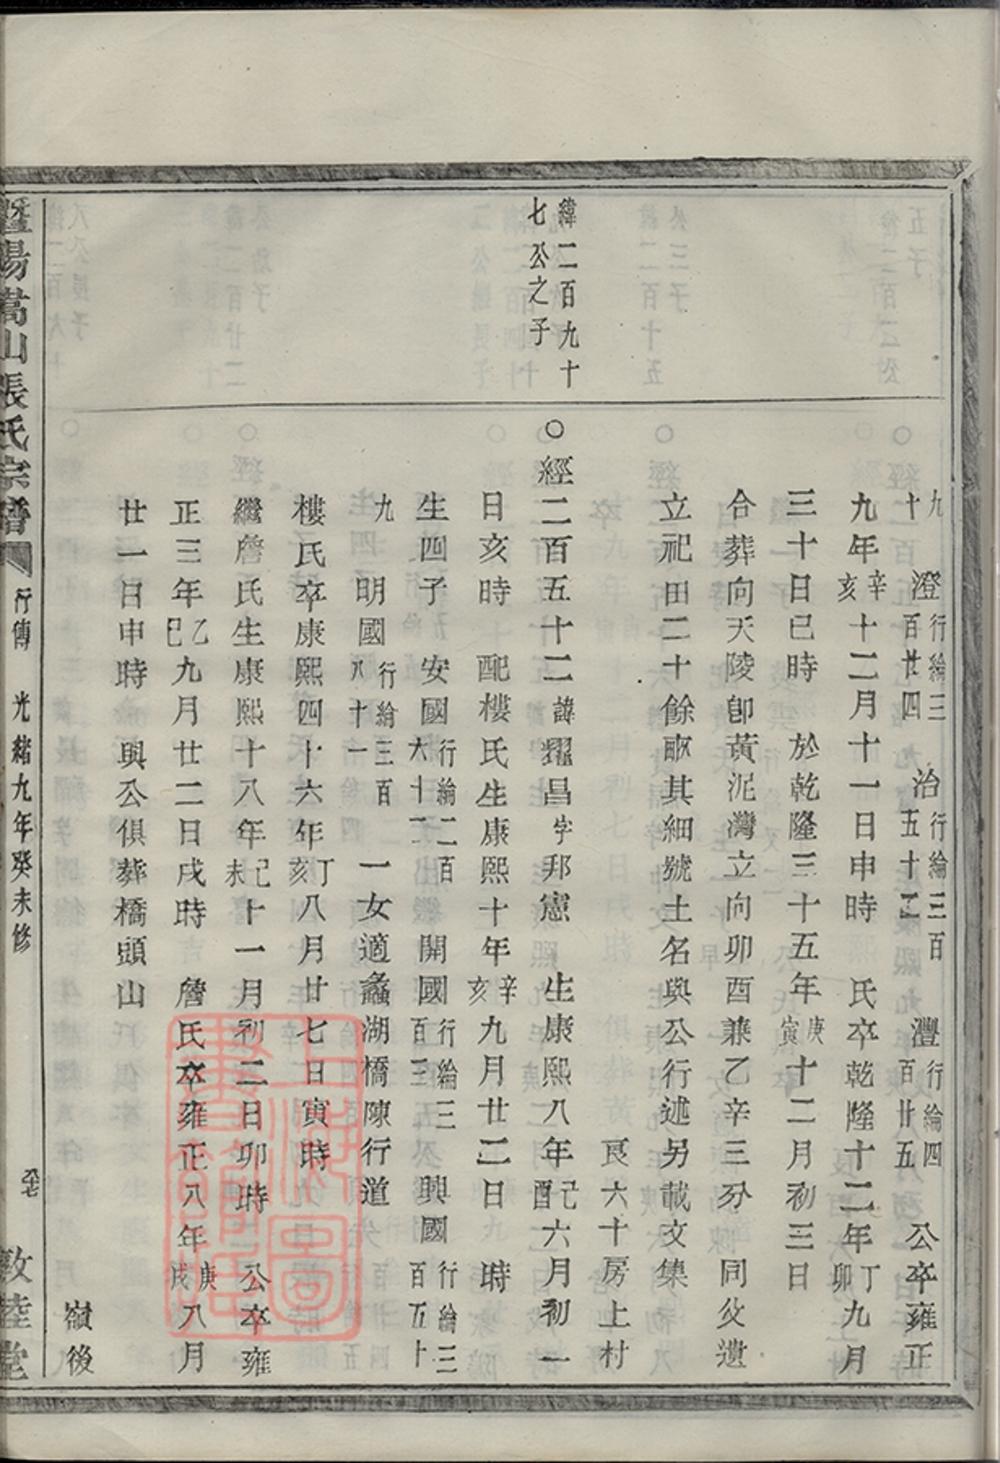 九十 澄行綸三百廿四 治行綸三百五十二 灃行綸四百廿五 公卒雍正
九年辛亥十二月十一日申時 氏卒乾隆十二年丁卯九月
三十日巳時 於乾隆三十五年庚寅十二月初三日
合葬向天陵卽黃泥灣立向卯酉兼乙辛三分 同父遺
立祀田二十餘畝其細號土名與公行述另載文集
良六十房上村
緯二百九十七公之子
○經二百五十二諱耀昌字邦憲 生康熙八年己酉六月初一
日亥時 配樓氏生康熙十年辛亥九月廿二日 時
生四子 安國行綸二百六十二 開國行綸三百三 興國行綸三百五十
九 明國行綸三百八十一 一女適蠡湖橋陳行道
樓氏卒康熙四十六年丁亥八月廿七日寅時
繼詹氏生康熙十八年己未十一月初二日卯時 公卒雍
正三年乙巳九月廿二日戌時 詹氏卒雍正八年庚戌八月
廿一日申時 與公俱葬橋頭山
嶺後
暨陽嵩山張氏宗譜 行傳 光緒九年癸未修 敦睦堂